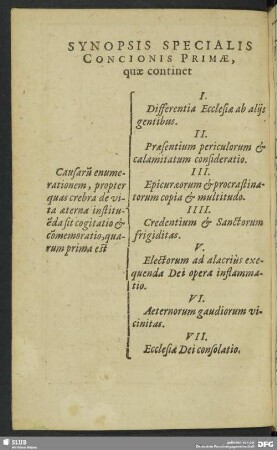 SYNOPSIS SPECIALIS
CONCIONIS PRIMÆ,
quæ continet
Causarũ enume-
rationem, propter
quas crebra de vi-
ta æterna institu-
ẽda sit cogitatio &
cõmemoratio, qua-
rum prima est
I.
Differentia Ecclesiæ ab alijs
gentibus.
II.
Præsentium periculorum &
calamitatum consideratio.
III.
Epicuræorum & procrastina-
torum copia & multitudo.
IIII.
Credentium & Sanctorum
frigiditas.
V.
Electorum ad alacriùs exe-
quenda Dei opera inflamma-
tio.
VI.
Aeternorum gaudiorum vi-
cinitas.
VII.
Ecclesiæ Dei consolatio.
SLUB
DFG